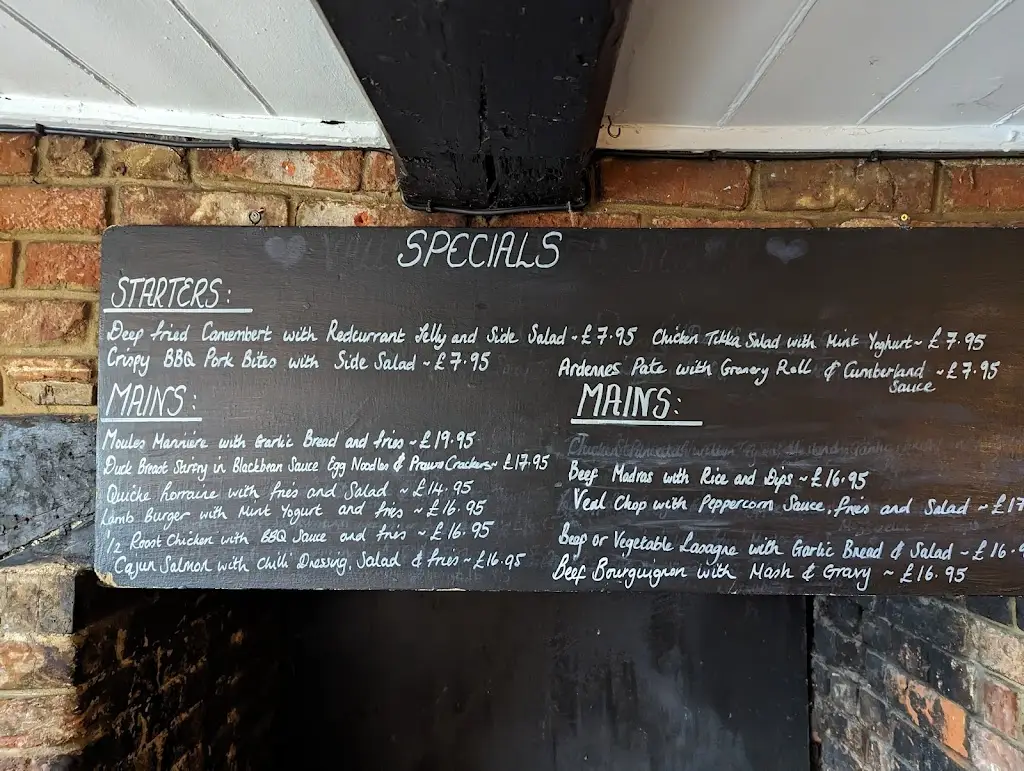 SPECIALS
STARTERS:
Deep fried Camembert with Redcurrant Jelly and Side Salad ~ £7.95
Crispy BBQ Pork Bites with Side Salad ~ £7.95
Chicken Tikka Salad with Mint Yoghurt ~ £7.95
Ardennes Pate with Granary Roll & Cumberland ~ £7.95
Sauce
MAINS:
Moules Marinière with Garlic Bread and fries ~ £19.95
Duck Breast Stirfry in Blackbean Sauce Egg Noodles & Prawn Crackers ~ £17.95
Quiche Lorraine with fries and Salad ~ £14.95
Lamb Burger with Mint Yogurt and fries ~ £16.95
1/2 Roast Chicken with BBQ Sauce and fries ~ £16.95
Cajun Salmon with chilli Dressing, Salad & fries ~ £16.95
MAINS:
Beef Madras with Rice and Dips ~ £16.95
Veal Chop with Peppercorn Sauce, fries and Salad ~ £17
Beef or Vegetable Lasagne with Garlic Bread & Salad ~ £16.9
Beef Bourguignon with Mash & Gravy ~ £16.95